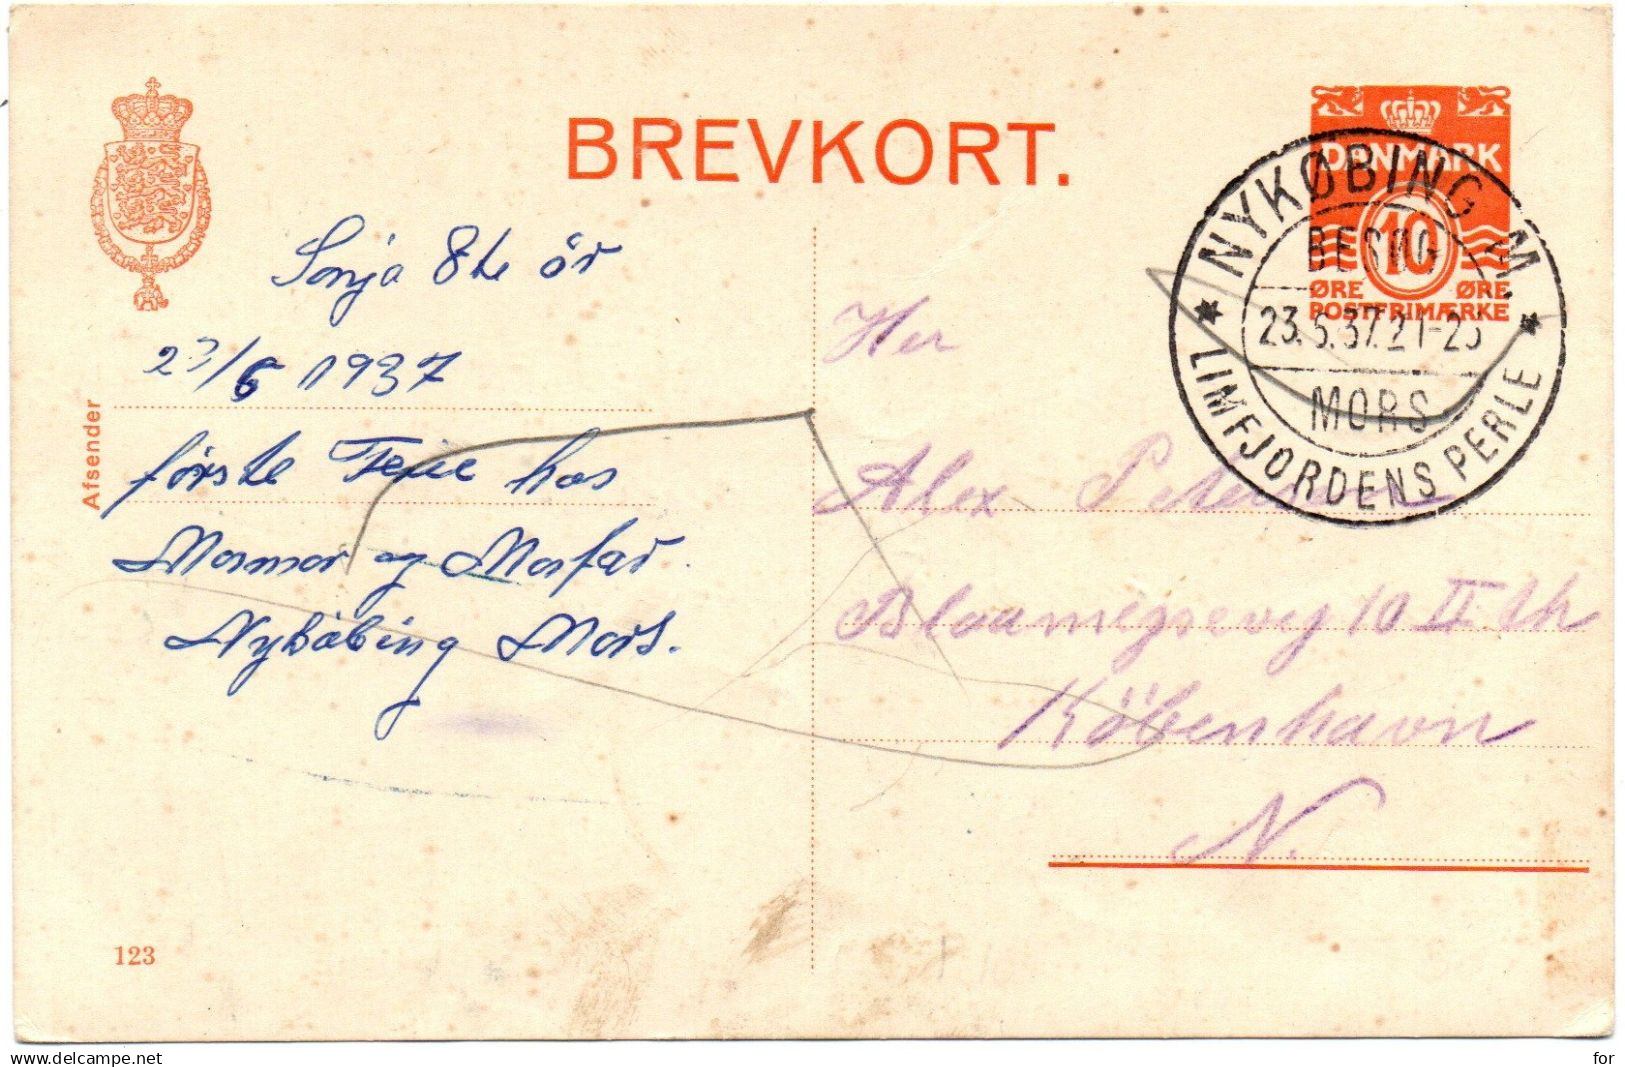 BREVKORT.
DANMARK
10
ØRE ØRE
POSTFRIMÆRKE
NYKØBING M.
BESØG
23.6.37.21-23
MORS
LIMFJORDENS PERLE
Sonja 8te år
23/6 1937
første Ferie hos
Mormor og Morfar.
Nyköbing Mors.
Afsender
123
Her
Alex Petersen
Blaamejsevej 10 II th
Köbenhavn
N.
delcampe.net
for